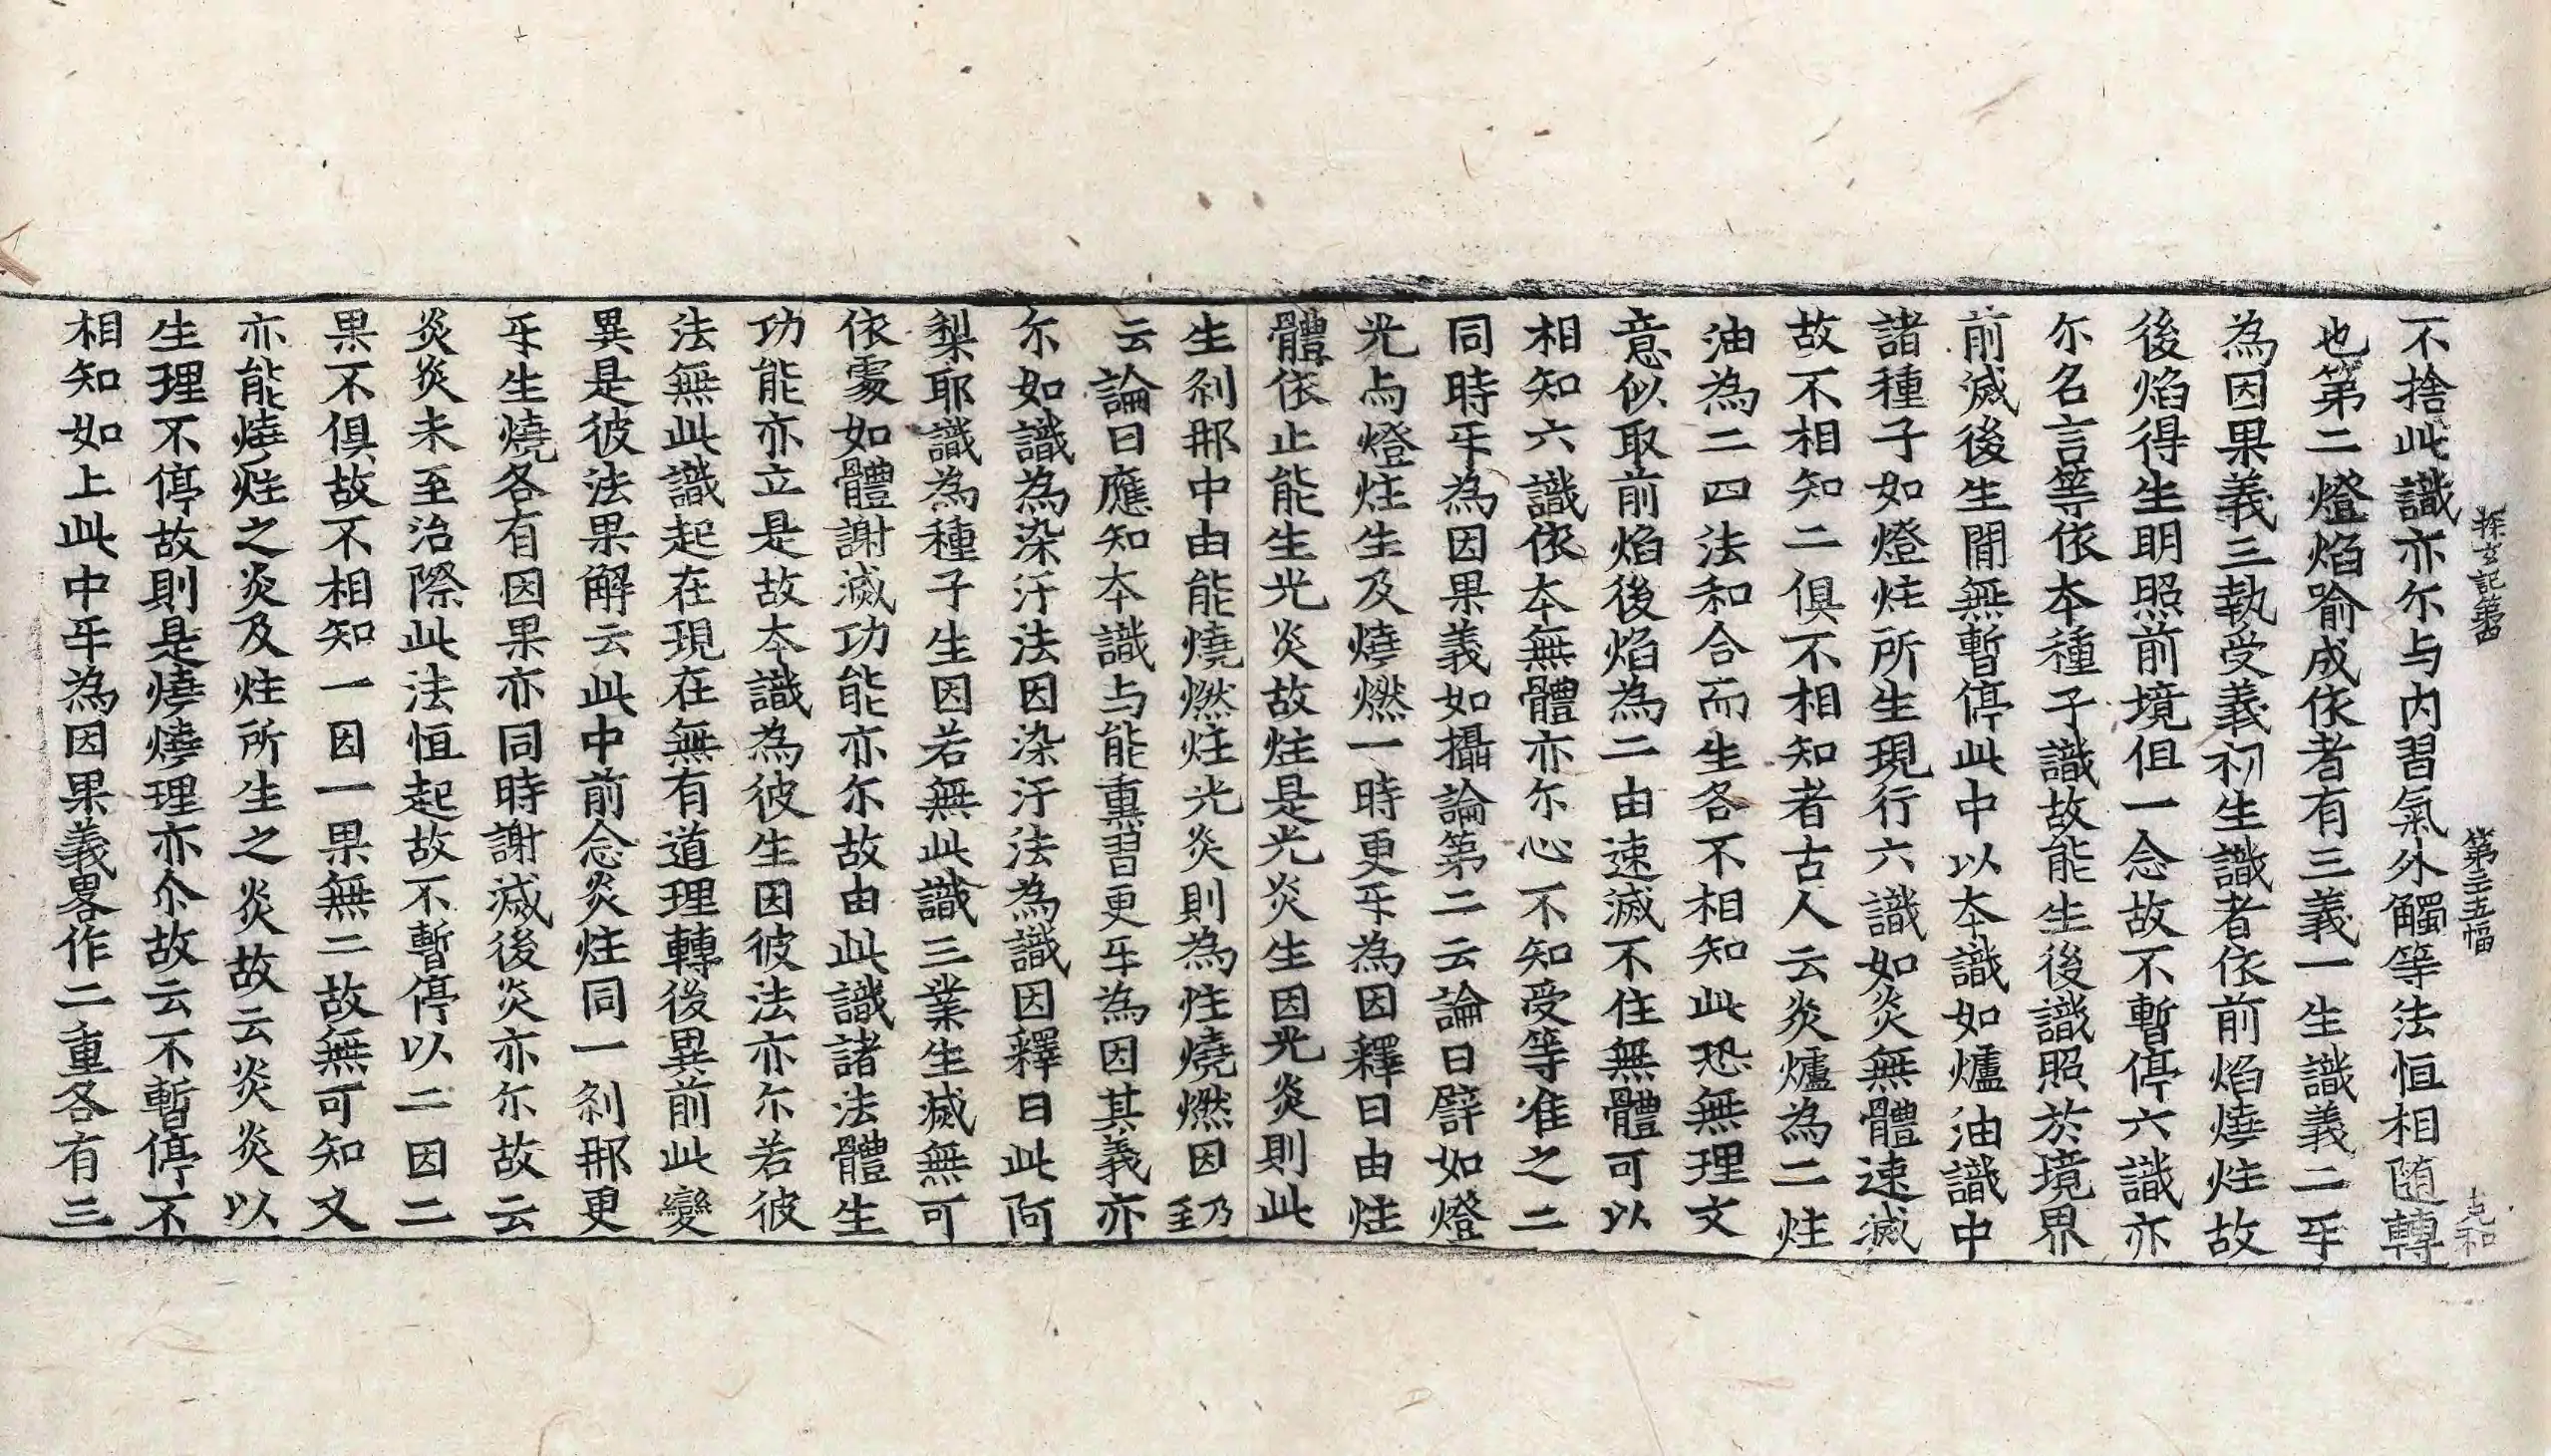 探玄記第四 第三五幅 克和
不捨此識亦尒与内習氣外觸等法恒相随轉
也第二燈焰喻成依者有三義一生識義二㸦
為因果義三執受義初生識者依前焰燒炷故
後焰得生明照前境但一念故不暫停六識亦
尒名言等依本種子識故能生後識照於境界
前滅後生間無暫停此中以本識如爐油識中
諸種子如燈炷所生現行六識如炎無體速滅
故不相知二俱不相知者古人云炎爐為二炷
油為二四法和合而生各不相知此恐無理文
意似取前焰後焰為二由速滅不住無體可以
相知六識依本無體亦尒心不知受等准之二
同時㸦為因果義如攝論第二云論曰譬如燈
光与燈炷生及燒燃一時更㸦為因釋曰由炷
體依止能生光炎故炷是光炎生因光炎則此
生刹那中由能燒燃炷光炎則為炷燒燃因乃至
云論曰應知本識与能熏習更㸦為因其義亦
尒如識為染汙法因染汙法為識因釋曰此阿
梨耶識為種子生因若無此識三業生滅無可
依處如體謝滅功能亦尒故由此識諸法體生
功能亦立是故本識為彼生因彼法亦尒若彼
法無此識起在現在無有道理轉後異前此變
異是彼法果解云此中前念炎炷同一刹那更
㸦生燒各有因果亦同時謝滅後炎亦尒故云
炎炎未至治際此法恒起故不暫停以二因二
果不俱故不相知一因一果無二故無可知又
亦能燒炷之炎及炷所生之炎故云炎炎以
生理不停故則是燒燒理亦尒故云不暫停不
相知如上此中㸦為因果義畧作二重各有三